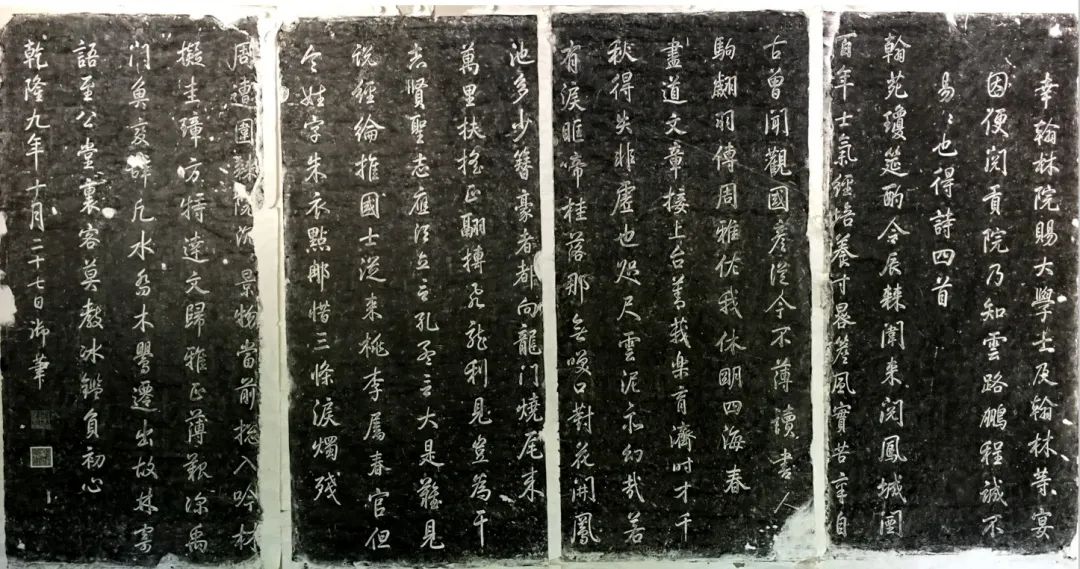 幸翰林院賜大學士及翰林等宴
因便閱貢院乃知雲路鵬程誠不
易〻也得詩四首
翰苑瓊筵酌令辰棘闈來閱鳳城闉
百年士氣經培養寸晷簷風實苦辛自
古曾聞觀國彥從今不薄讀書人
駒翽羽傳周雅佐我休明四海春
盡道文章接上台菁莪樂育濟時才千
秋得失非虛也咫尺雲泥亦幻哉若
有淚眶啼桂落那無笑口對花開鳳
池多少簪豪者都向龍門燒尾來
萬里扶搖正翮摶飛龍利見豈為干
志賢聖志應須立言孔孟言大是難見
說經綸推國士從來桃李屬春官但
令姓字朱衣點那惜三條淚燭殘
周遭圍棘院沉〻景物當前總入吟材
擬圭璋方特達文歸雅正薄艱深禹
門魚變辭凡水喬木鶯遷出故林寄
語至公堂裏客莫教冰鑑負初心
乾隆九年十月二十七日御筆